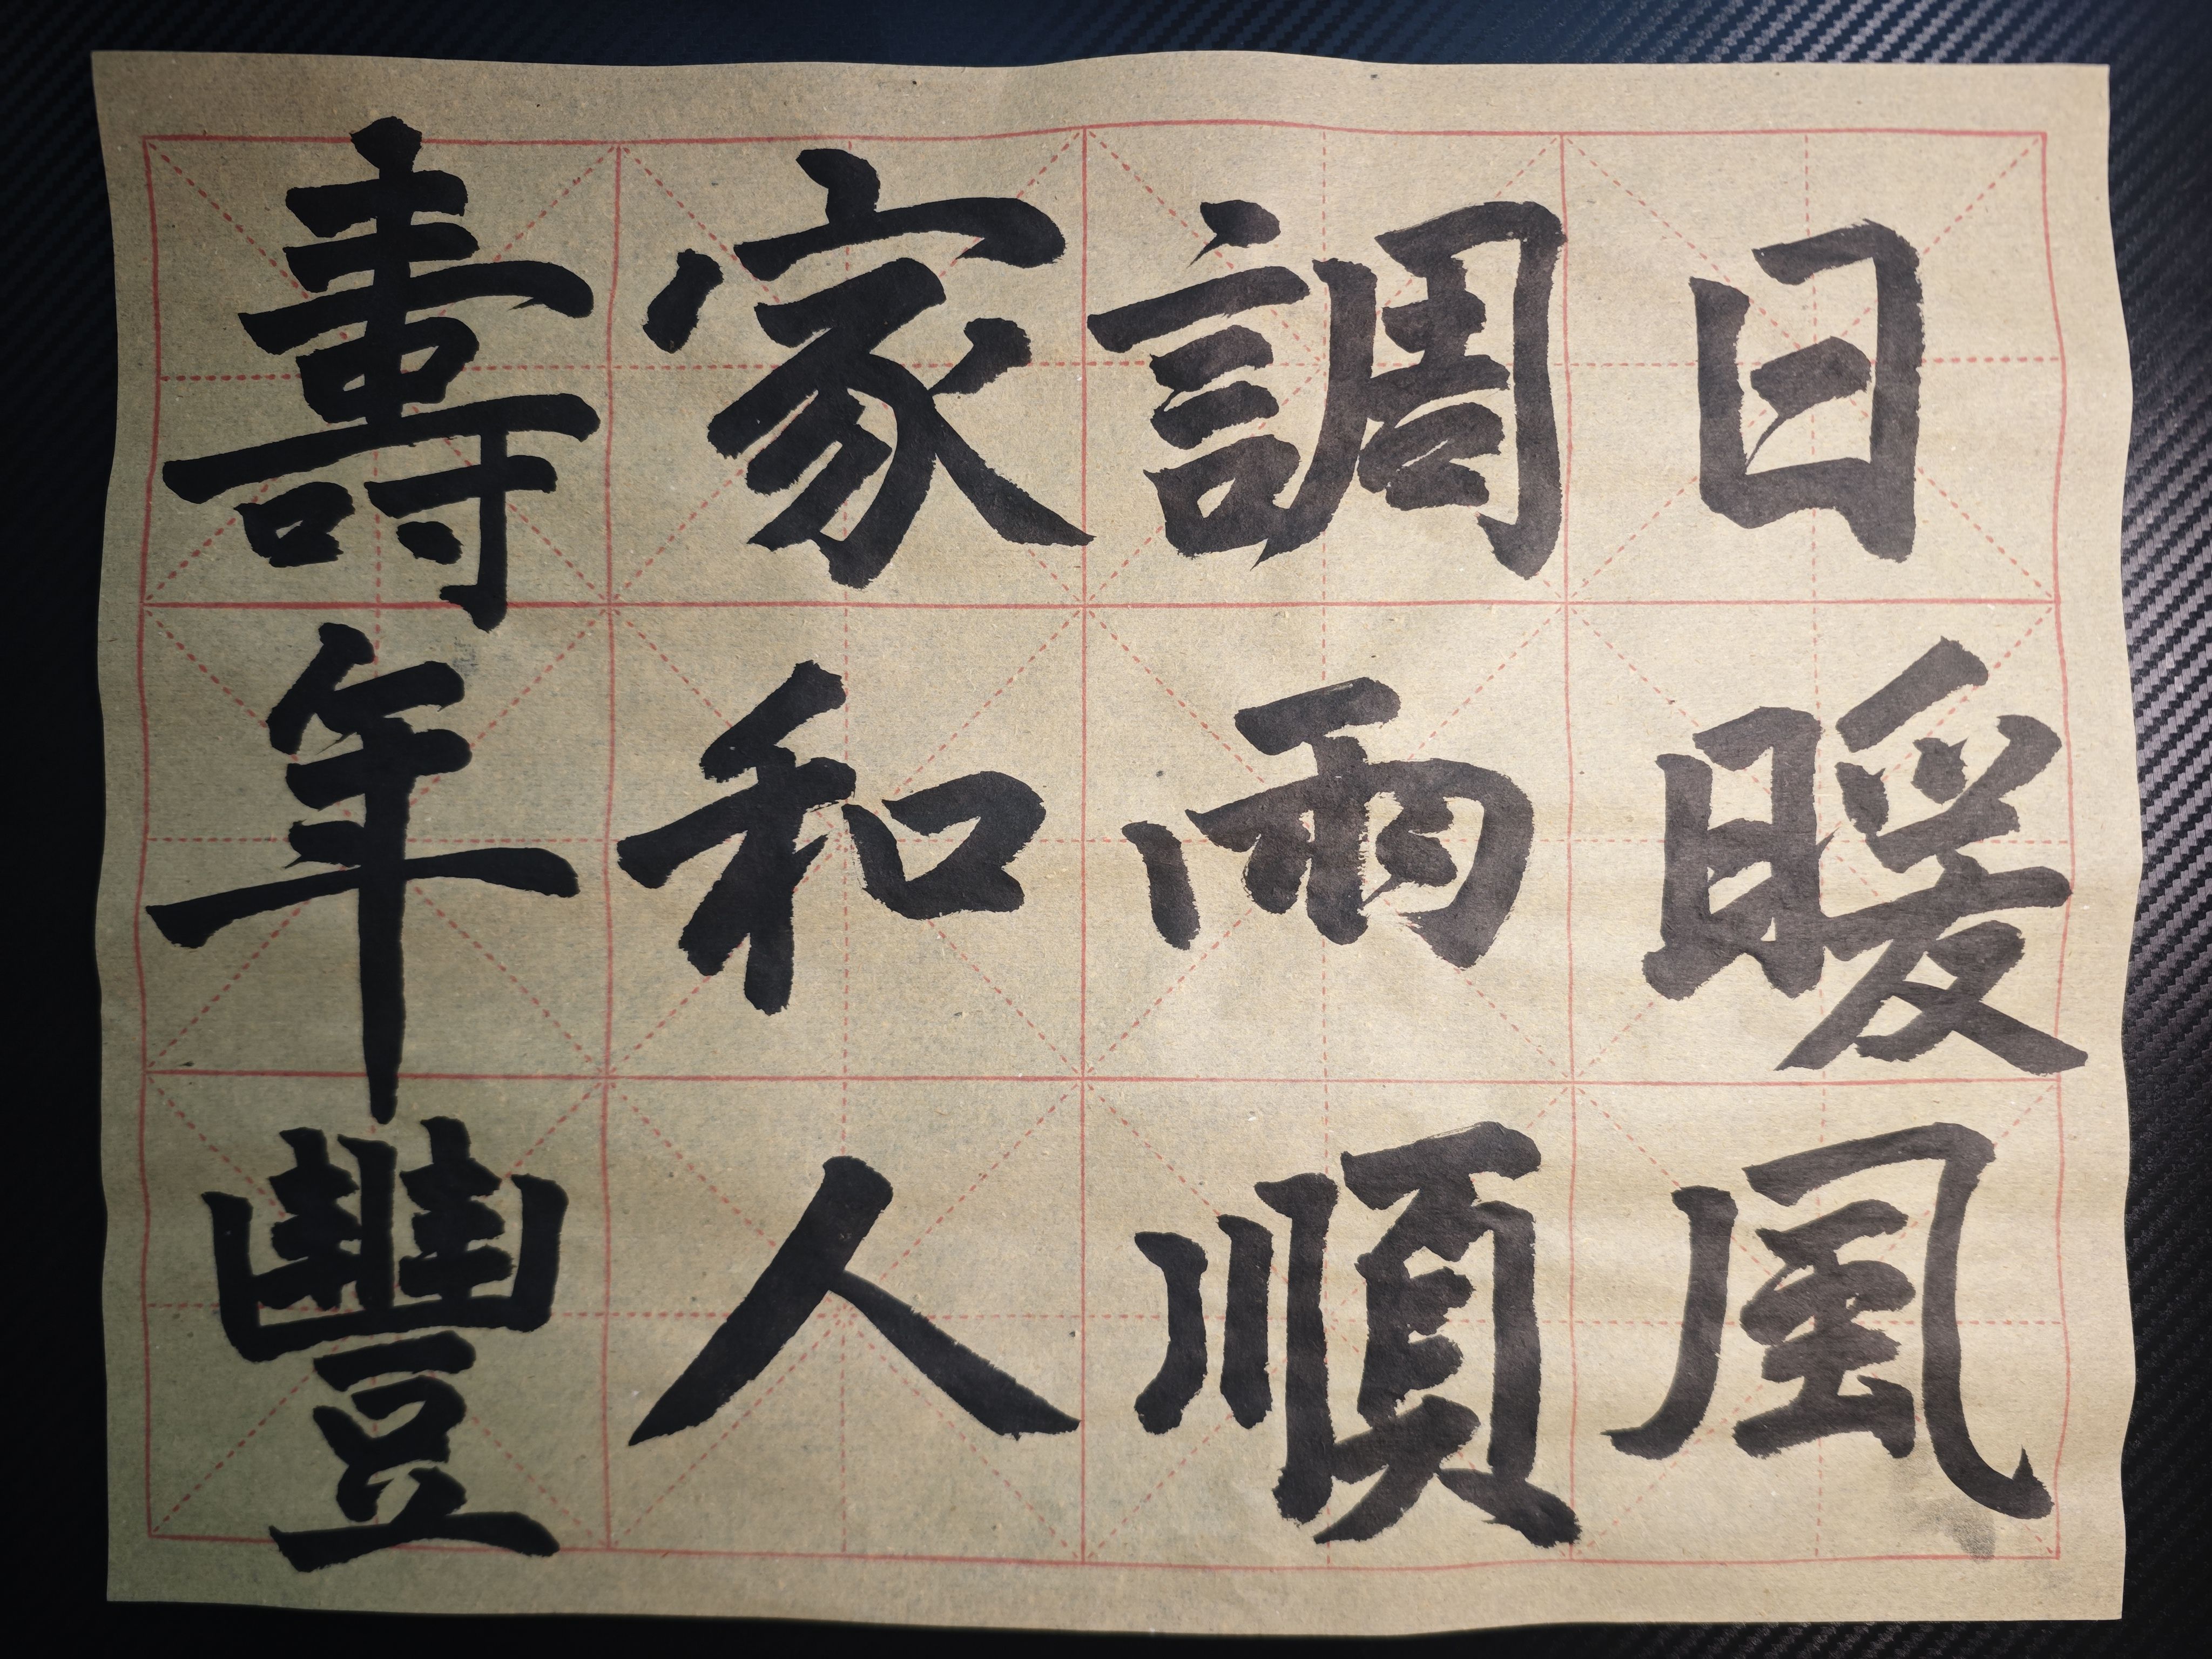 日暖風
調雨順
家和人
壽年豐